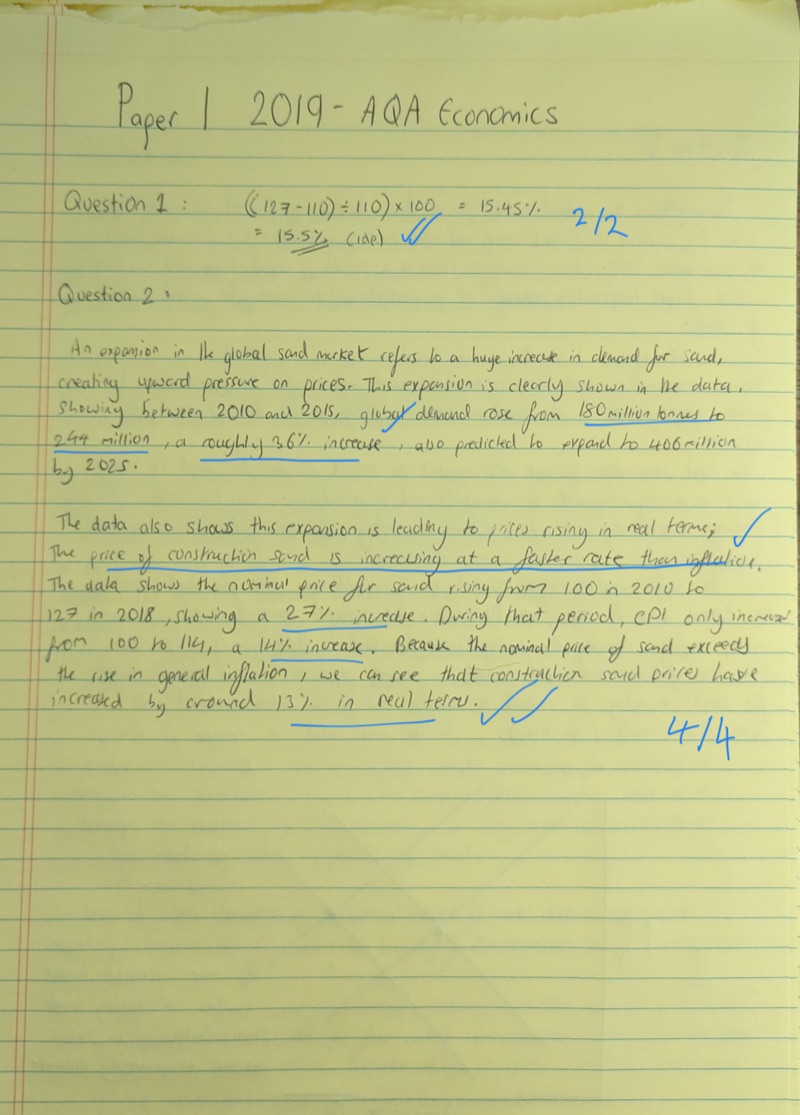 Paper 1 2019 - AQA Economics
Question 1 : ((127 - 110) ÷ 110) × 100 = 15.45%
= 15.5% (1dp)
2/2
Question 2 :
An expansion in the global sand market refers to a huge increase in demand for sand,
creating upward pressure on prices. This expansion is clearly shown in the data.
Showing between 2010 and 2015, global demand rose from 180 million tonnes to
244 million, a roughly 36% increase, also predicted to expand to 406 million
by 2025.
The data also shows this expansion is leading to prices rising in real terms;
The price of construction sand is increasing at a faster rate than inflation.
The data shows the nominal price for sand rising from 100 in 2010 to
127 in 2018, showing a 27% increase. During that period, CPI only increased
from 100 to 114, a 14% increase. Because the nominal price of sand exceeds
the rise in general inflation, we can see that construction sand prices have
increased by around 13% in real terms.
4/4